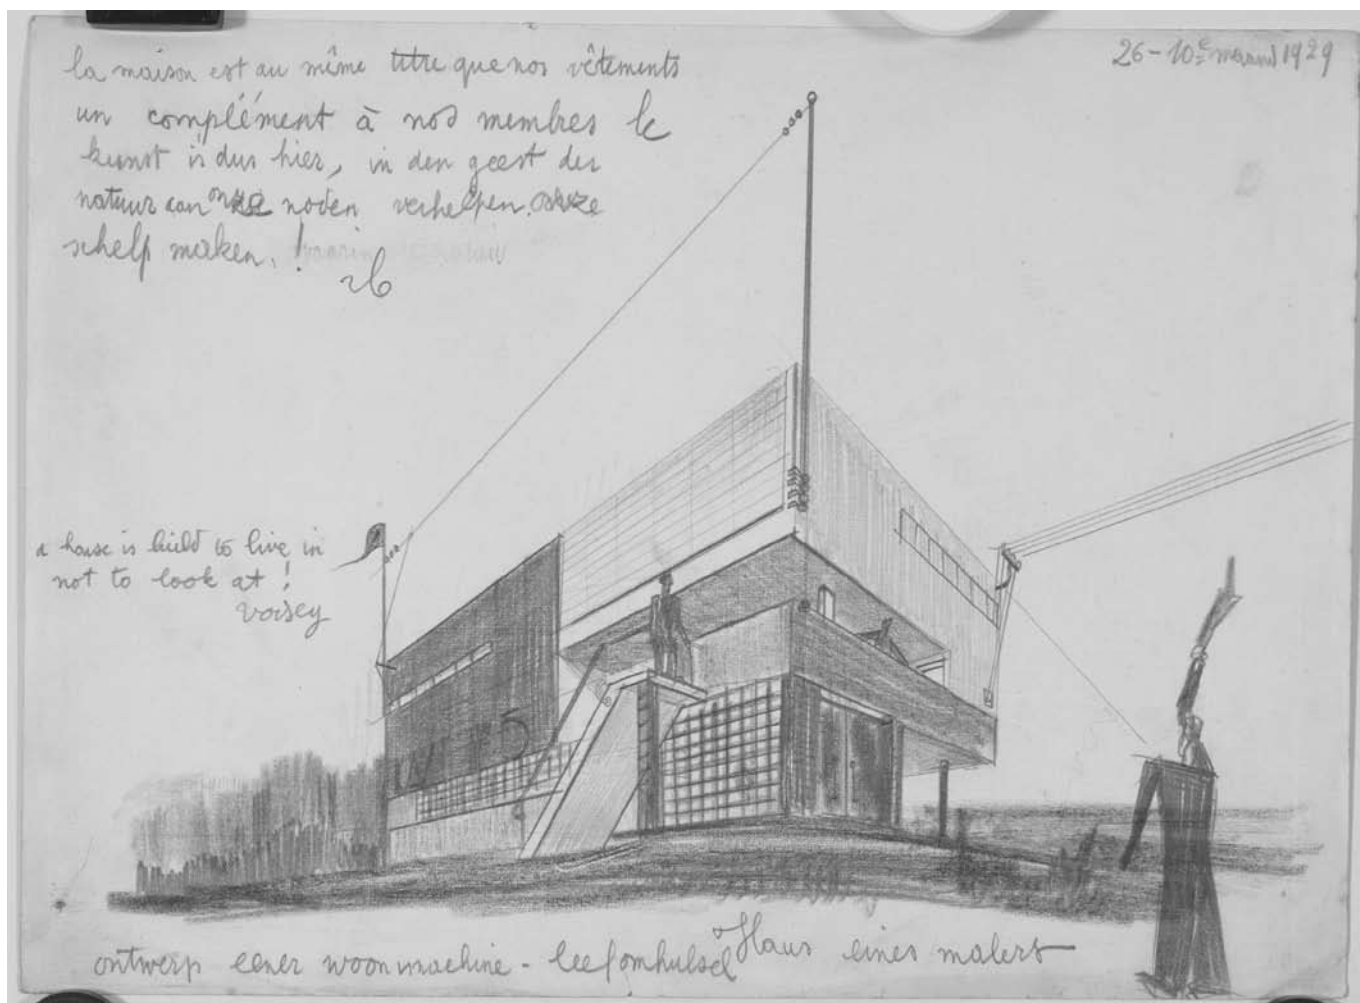 26-10e maand 1929
la maison est au même titre que nos vêtements
un complément à nos membres lc
kunst is dus hier, in den geest der
natuur aan onze noden verhelpen. onze
schelp maken. !
a house is build to live in
not to look at !
voisey
ontwerp eener woonmachine - leefomhulsel Haus eines malers